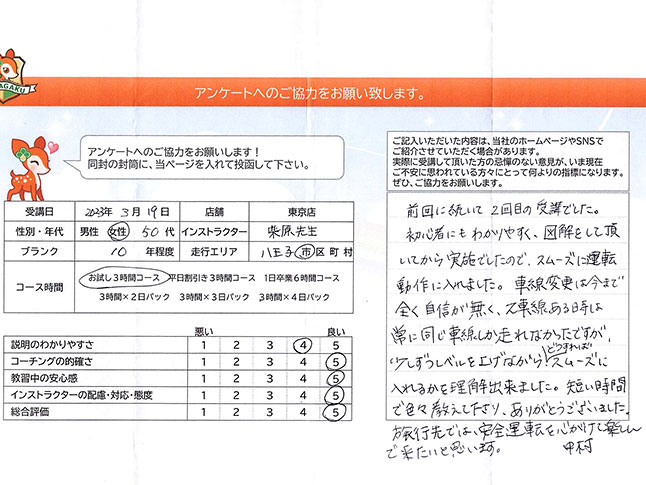 AGAKU
アンケートへのご協力をお願い致します。
アンケートへのご協力をお願いします！
同封の封筒に、当ページを入れて投函して下さい。
ご記入いただいた内容は、当社のホームページやSNSで
ご紹介させていただく場合があります。
実際に受講して頂いた方の忌憚のない意見が、いま現在
ご不安に思われている方々にとって何よりの指標になります。
ぜひ、ご協力をお願いします。
受講日 2023年 3月 19日 店舗 東京店
性別・年代 男性 女性 50代 インストラクター 柴原先生
ブランク 10 年程度 走行エリア 八王子 市区町村
コース時間 お試し3時間コース 平日割引き3時間コース 1日卒業6時間コース
3時間×2日パック 3時間×3日パック 3時間×4日パック
悪い 良い
説明のわかりやすさ 1 2 3 4 5
コーチングの的確さ 1 2 3 4 5
教習中の安心感 1 2 3 4 5
インストラクターの配慮・対応・態度 1 2 3 4 5
総合評価 1 2 3 4 5
前回に続いて 2回目の受講でした。
初心者にもわかりやすく、図解をして頂
いてから実施でしたので、スムーズに運転
動作に入れました。車線変更は今まで
全く自信が無く、2車線ある時は
常に同じ車線しか走れなかったですが、
少しずつレベルを上げながら、どうすればスムーズに
入れるかを理解出来ました。短い時間
で色々教えて下さり、ありがとうございました。
旅行先では、安全運転を心がけて楽しん
で来たいと思います。 中村